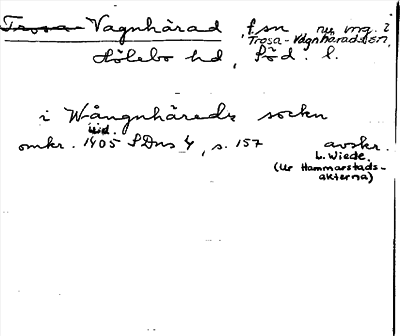 Trosa-Vagnhärad, f sn nu ing. i
Trosa-Vagnhärads sn,
Hölebo hd, Söd. l.
i Wångnhäreds sockn
utd.
omkr. 1405 SDns 4, s. 157 avskr.
L. Wiede.
(Ur Hammarstads-
akterna)